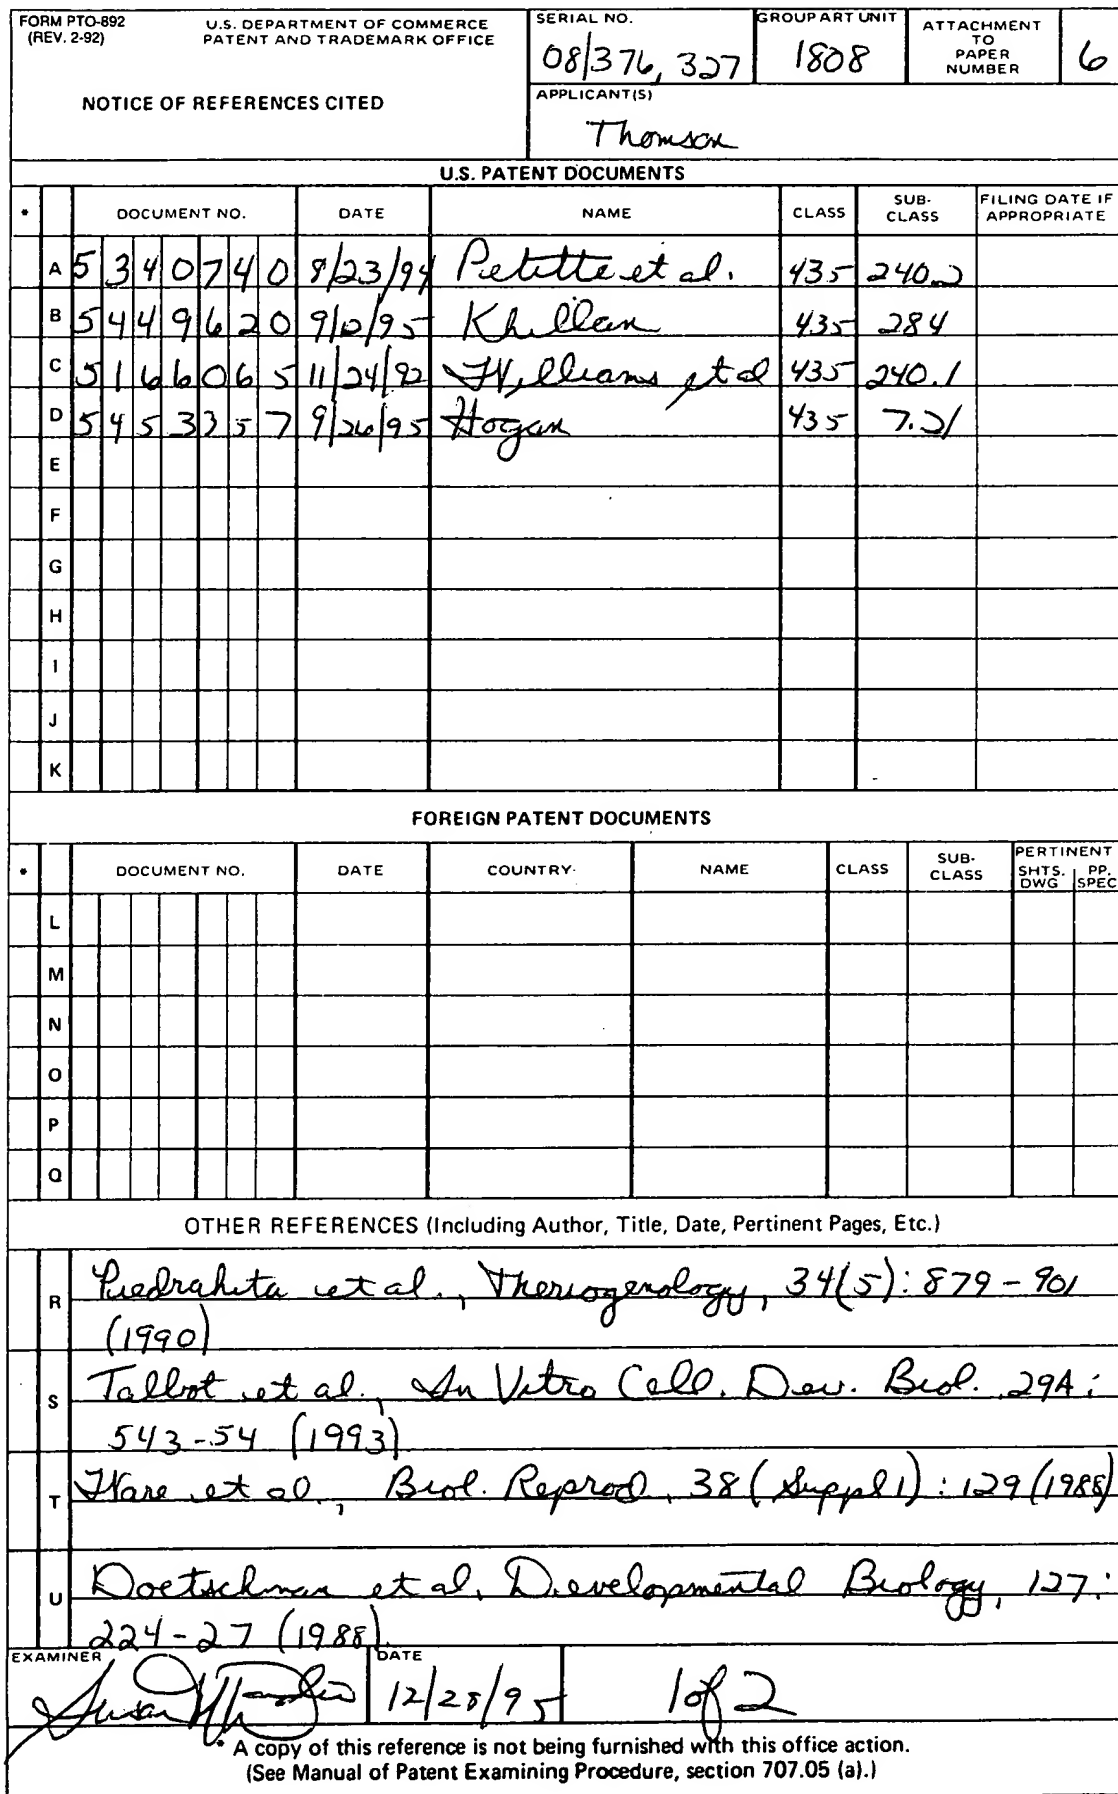 FORM PTO-892 U.S. DEPARTMENT OF COMMERCE
(REV. 2-92) PATENT AND TRADEMARK OFFICE
NOTICE OF REFERENCES CITED
SERIAL NO.
08/376,327
GROUP ART UNIT
1808
ATTACHMENT
TO
PAPER
NUMBER
6
APPLICANT(S)
Thomson
U.S. PATENT DOCUMENTS
* DOCUMENT NO. DATE NAME CLASS SUB-CLASS FILING DATE IF APPROPRIATE
A 5340740 8/23/94 Petitte et al. 435 240.2
B 5449620 9/12/95 Khillan 435 284
C 5166065 11/24/92 Williams et al 435 240.1
D 5453357 9/26/95 Hogan 435 7.21
E
F
G
H
I
J
K
FOREIGN PATENT DOCUMENTS
* DOCUMENT NO. DATE COUNTRY NAME CLASS SUB-CLASS PERTINENT SHTS. DWG PP. SPEC
L
M
N
O
P
Q
OTHER REFERENCES (Including Author, Title, Date, Pertinent Pages, Etc.)
R Piedrahita et al., Theriogenology, 34(5): 879-901
(1990)
S Talbot et al., In Vitro Cell. Dev. Biol. 29A:
543-54 (1993)
T Ware et al., Biol. Reprod. 38 (Suppl 1): 129 (1988)
U Doetschman et al, Developmental Biology, 127:
224-27 (1988).
EXAMINER
Susan
DATE
12/28/95
1 of 2
* A copy of this reference is not being furnished with this office action.
(See Manual of Patent Examining Procedure, section 707.05 (a).)